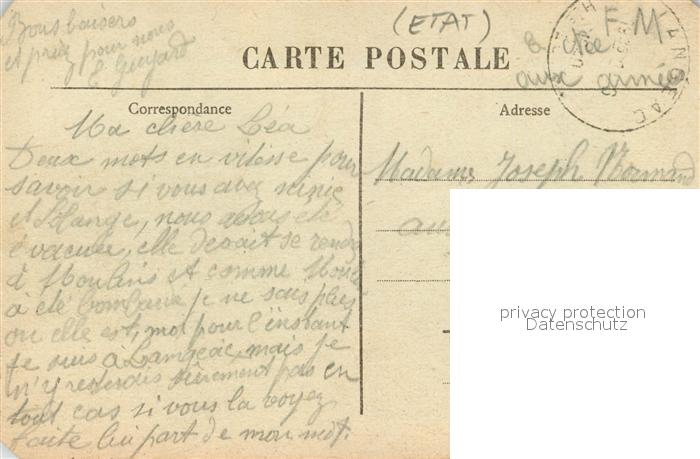 Bons baisers
et priez pour nous
E Guyard
(ETAT)
F M
aux armées
CARTE POSTALE
Correspondance
Adresse
Ma chère Léa
Deux mots en vitesse pour
savoir si vous avez
et Solange, nous avons été
évacuée, elle devait se rendre
à Moulins et comme
a été bombardé je ne sais plus
ou elle est, moi pour l'instant
je suis à Langeac, mais je
n'y resterais sûrement pas en
tout cas si vous la voyez
faite lui part de mon mot.
Madame Joseph Normand
privacy protection
Datenschutz
LANGEAC